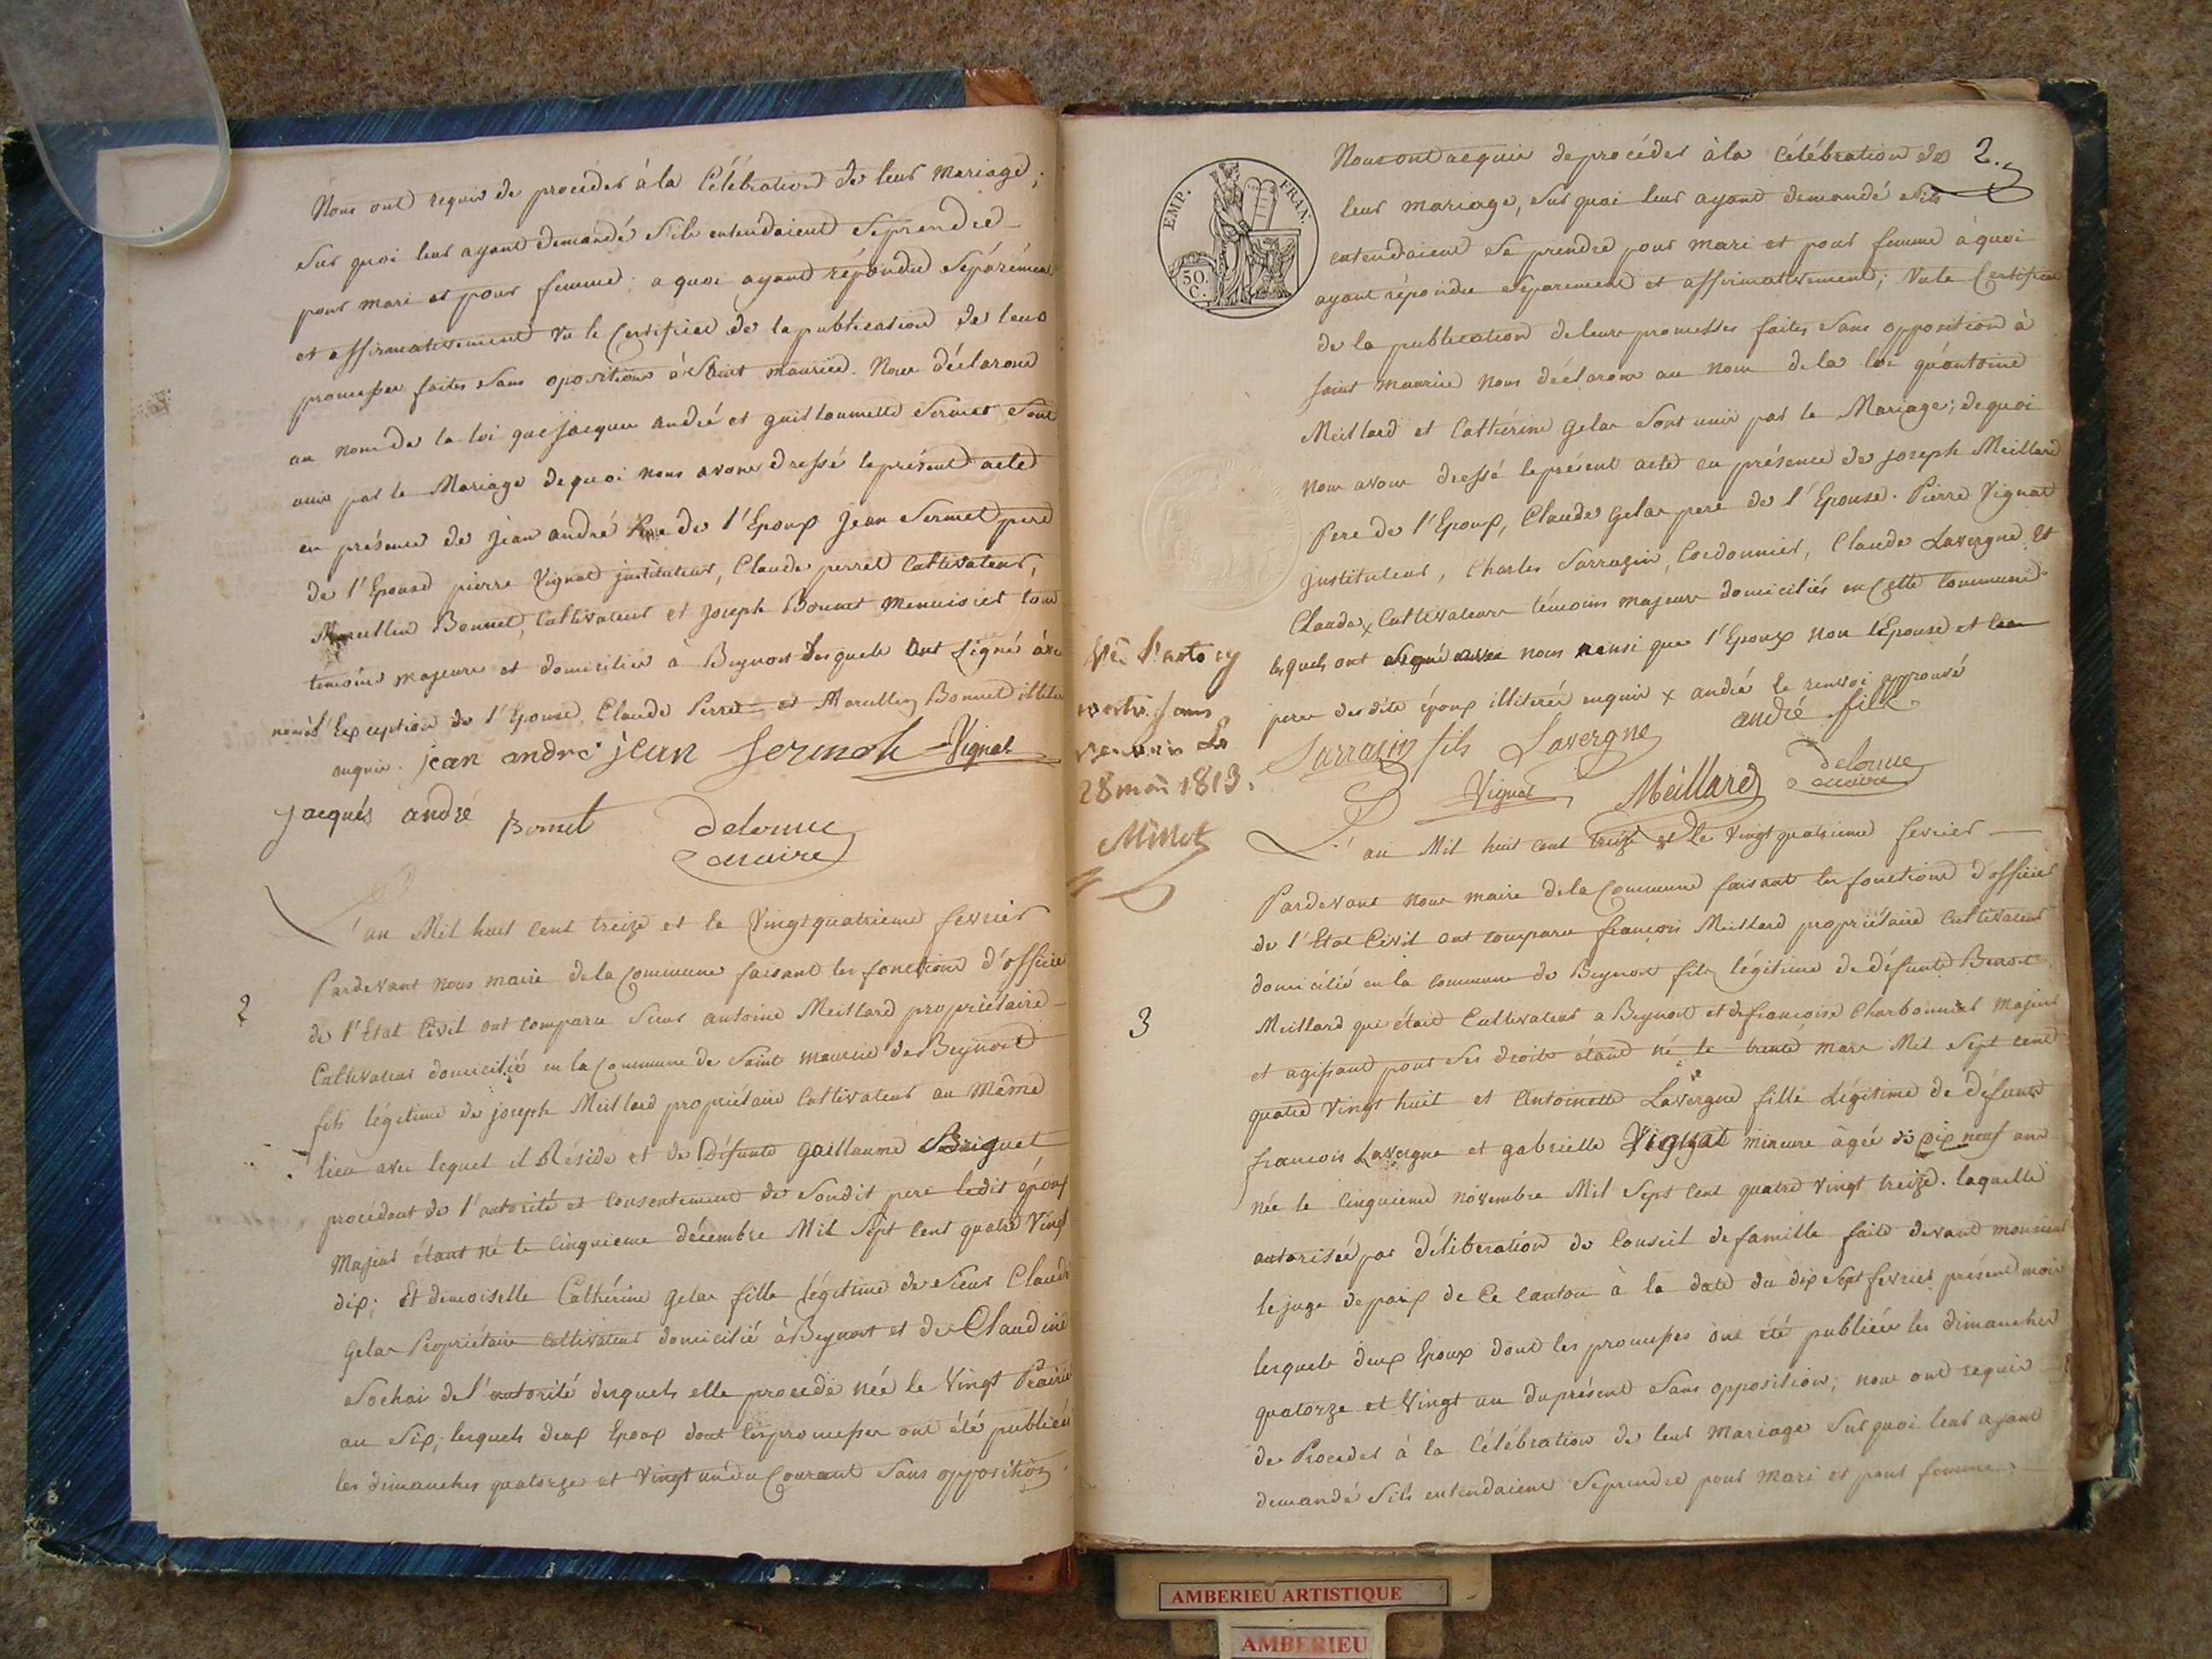 Nous ont requis de proceder à la Célébration de leur mariage;
Sur quoi leur ayant demandé S'ils entendaient Seprendre
pour mari et pour femme; a quoi ayant répondu Séparément
et affirmativement Vu le Certificat de la publication de leurs
promesses faites Sans oposition à Saint maurice. Nous déclarons
au nom de la loi que jacques andré et guillaumette Sermet Sont
unis par le Mariage de quoi nous avons dressé le présent acte
en présence de jean andré Pere de l'Epoux jean Sermet pere
de l'Epouse pierre Vignat jnstituteur, Claude perret Cultivateur,
Marcellin Bonnet, Cultivateur et joseph Bonnet menuisier tous
temoins majeurs et domiciliés à Beynost Lesquels Ont Signé avec
nous à l'Exception de l'Epouse, Claude Perret et Marcellin Bonnet illiterés
enquis. jean andré jean Sermet Vignat
jacques andré Bonnet Delorme
maire
L'an Mil huit cent treize et le Vingt quatrieme fevrier
Pardevant nous maire de la Commune faisant les fonctions d'officier
2
de l'Etat Civil ont comparu Sieur antoine Meillard propriétaire
Cultivateur domicilié en la Commune de Saint maurice de Beynost
fils légitime de joseph Meillard propriétaire Cultivateur au Même
lieu avec lequel il Réside et de Défunte guillaume Briguet
procédant de l'autorité et Consentement de Sondit pere ledit époux
Majeur étant né le Cinquieme décembre Mil Sept Cent quatre Vingt
dix; Et demoiselle Cathérine gelas fille légitime de Sieur Claude
gelas Propriétaire Cultivateur domicilié à Beynost et de Claudine
Sochai de l'autorité desquels elle procede née le Vingt Prairial
an Six; lesquels deux Epoux dont les promesses ont été publiées
les dimanches quatorze et Vingt un du Courant Sans opposition
2.
Nous ont requis de procéder à la Célébration de
leur mariage, Sur quoi leur ayant demandé S'ils
entendaient Se prendre pour mari et pour femme à quoi
ayant répondu Séparement et affirmativement; Vu le Certificat
de la publication de leurs promesses faites Sans opposition à
Saint maurice Nous déclarons au Nom de la loi qu'antoine
Meillard et Cathérine gelas Sont unis par le Mariage; de quoi
nous avons dressé le présent acte en présence de joseph Meillard
Pere de l'Epoux, Claude gelas pere de l'Epouse. Pierre Vignat
jnstituteur, Charles Sarrazin, Cordonnier, Claude Lavergne et
Claude x Cultivateurs témoins majeurs domiciliés en Cette Commune
lesquels ont Signé avec nous ainsi que l'Epoux non l'Epouse et les
peres desdits époux illiterés enquis x andré le renvoi approuvé
EMP. FRAN.
50 C.
Sarrazin fils Lavergne andré fils
Vignat Meillard Delorme
maire
28 mars 1813.
Millet
L'an Mil huit cent treize et Le Vingt quatrieme fevrier
Pardevant nous maire de la Commune faisant les fonctions d'officier
de l'Etat Civil ont comparu françois Meillard propriétaire Cultivateur
domicilié en la commune de Beynost fils légitime de défunt Benoit
3
Meillard qui était Cultivateur a Beynost et de francoise Charbonnier majeur
et agissant pour Ses droits étant né le trente mars Mil Sept cent
quatre Vingt huit et Antoinette Lavergne fille Légitime de défunt
françois Lavergne et gabrielle Vignat mineure âgée de dix neuf ans
née le Cinquieme novembre Mil Sept Cent quatre Vingt treize. laquelle
autorisée par Délibération de Conseil de famille faite devant monsieur
le juge de paix de Ce Canton à la date du dix Sept fevrier présent mois
lesquels deux Epoux dont les promesses ont été publiées les dimanches
quatorze et Vingt un du présent Sans opposition; nous ont requis
de Proceder à la Célébration de leur Mariage Sur quoi leur ayant
demandé S'ils entendaient Seprendre pour Mari et pour femme
AMBERIEU ARTISTIQUE
AMBERIEU